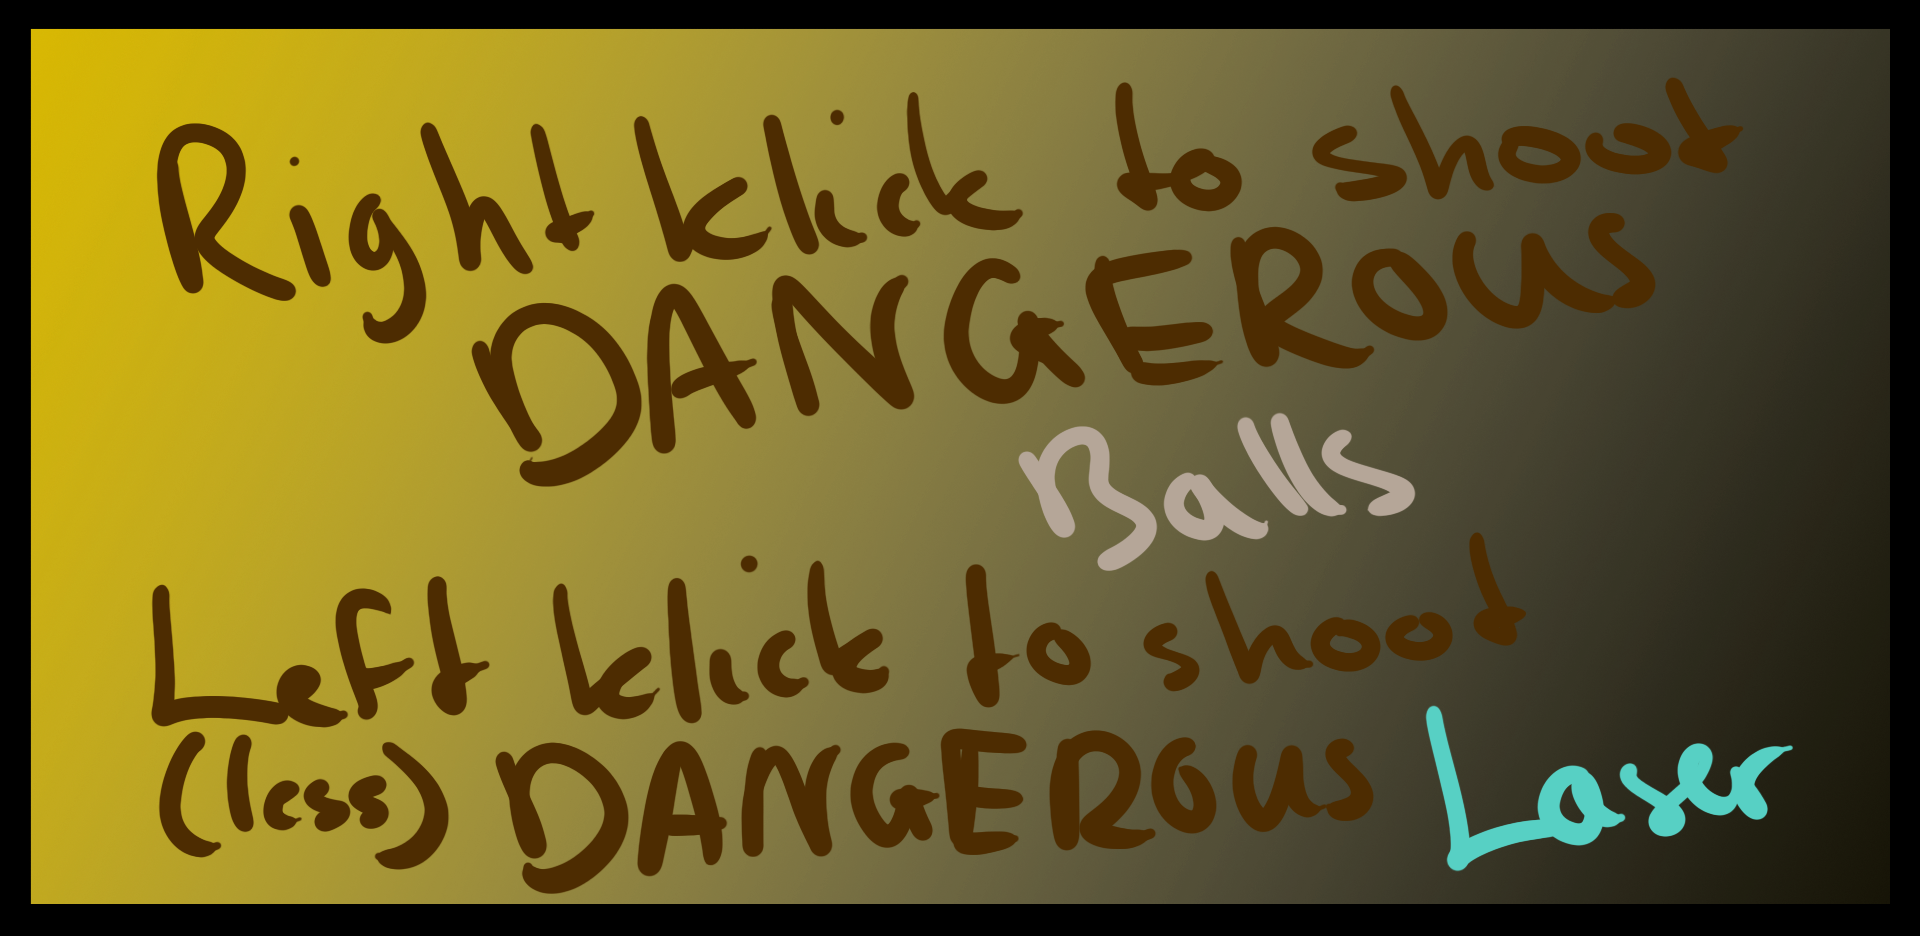 Right klick to shoot
DANGEROUS
Balls
Left klick to shoot
(less) DANGEROUS Laser